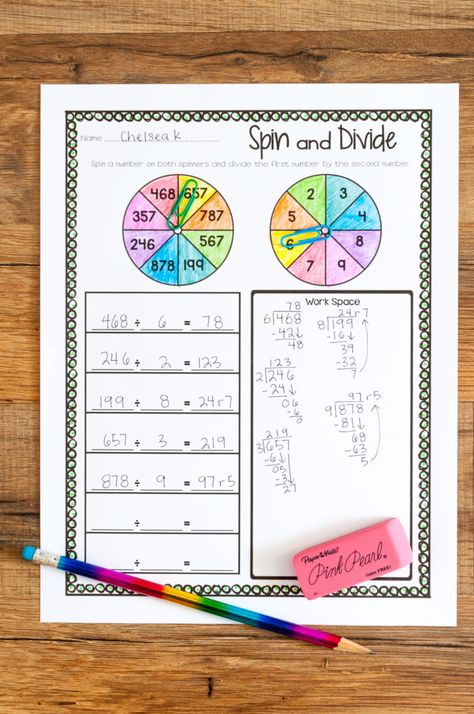 Name Chelsea K.
Spin and Divide
Spin a number on both spinners and divide the first number by the second number.
468 657
357 787
246 567
878 199
2 3
5 4
6 8
7 9
468 ÷ 6 = 78
246 ÷ 2 = 123
199 ÷ 8 = 24r7
657 ÷ 3 = 219
878 ÷ 9 = 97r5
÷ =
÷ =
Work Space
78
6 468
-42↓
48
24r7
8 199
-16↓
39
-32
7
123
2 246
-24↓
06
-6
0
97r5
9 878
-81↓
68
-63
5
219
3 657
-6↓
05
-3
27
Paper Mate
Pink Pearl